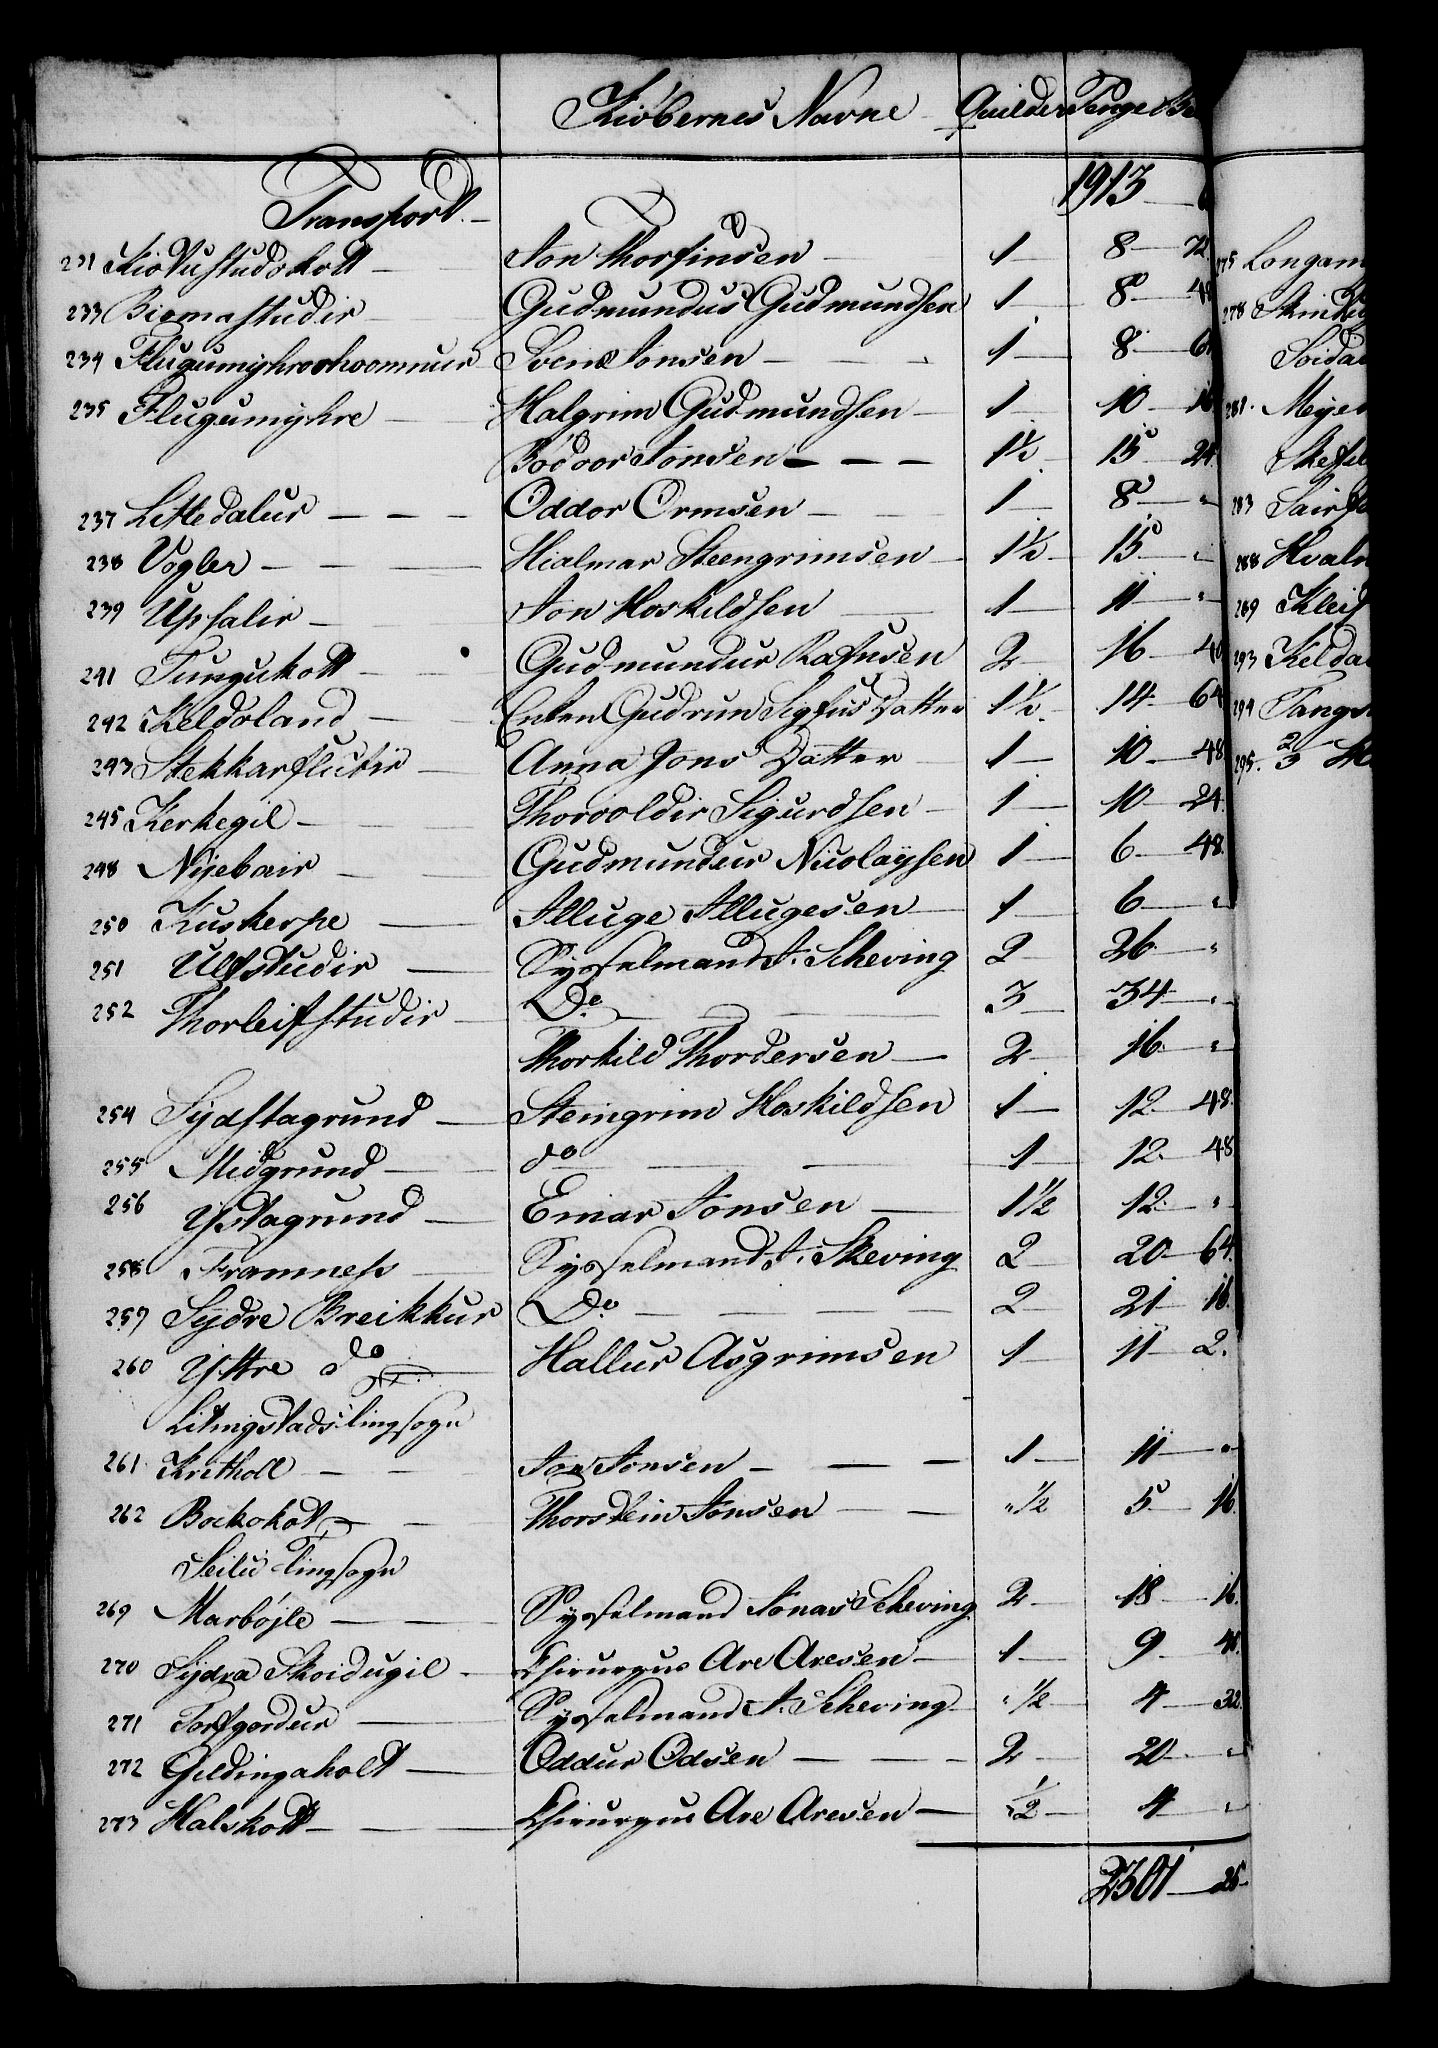 Kiöbernes Navne Quilder Penge Be
Transport. 1913
231 Kiövustudskott Jon Thorfinsen 1 8 72
233 Biornastudir Gudmundus Gudmundsen 1 8 48
234 Flugumyhrorhoomnur Svend Jonsen 1 8 6
235 Flugumyhre Halgrim Gudmundsen 1 10 16
Bödvor Jonsen 1½ 15 24
237 Littedalur Oddor Ormsen 1 8 "
238 Vogler Hialmar Steengrimsen 1½ 15 "
239 Upsalir Jon Hoskildsen 1 11 "
241 Tungukott Gudmundur Rafnsen 2 16 40
242 Keldoland Enken Gudrun Sigfus Datter 1½ 14 64
243 Stekkarflutir Anna Jons Datter 1 10 48
245 Kerkegil Thorvoldir Sigurdsen 1 10 24
248 Nyebair Gudmundur Nicolaysen 1 6 48
250 Kuskerpe Illuge Illugesen 1 6 "
251 Ulfstudir Sysselmand J. Scheving 2 26 "
252 Thorleifstudir Do 3 34 "
Thorkild Thordersen 2 16 "
254 Sydstagrund Steingrim Hoskildsen 1 12 48
255 Midgrund do 1 12 48
256 Ystagrund Einar Jonsen 1½ 12 "
258 Framness Sysselmand J. Skeving 2 20 64
259 Sydre Breikkur Do 2 21 16
260 Yttre do Hallur Asgrimsen 1 11 2.
Litingstads tingsogn
261 Kritholl Jon Jonsen 1 11 "
262 Bockokot Thorstein Jonsen " ½ 5 16
Seilu Tingsogn
269 Marböjle Sysselmand Jonas Scheving 2 18 16
270 Sydra Skoidugil Chirurgus Are Aresen 1 9
271 Torfgordur Sysselmand J. Scheving " ½ 4 32
272 Geldingaholt Oddur Odsen 2 20 "
273 Halskott Chirurgus Are Aresen " ½ 4 "
2301 25
275 Longam
278 Skindu
281. Meyer
283
288 Hvaln
289 Kleif
293 Kelda
294 Tangs
295. ⅔